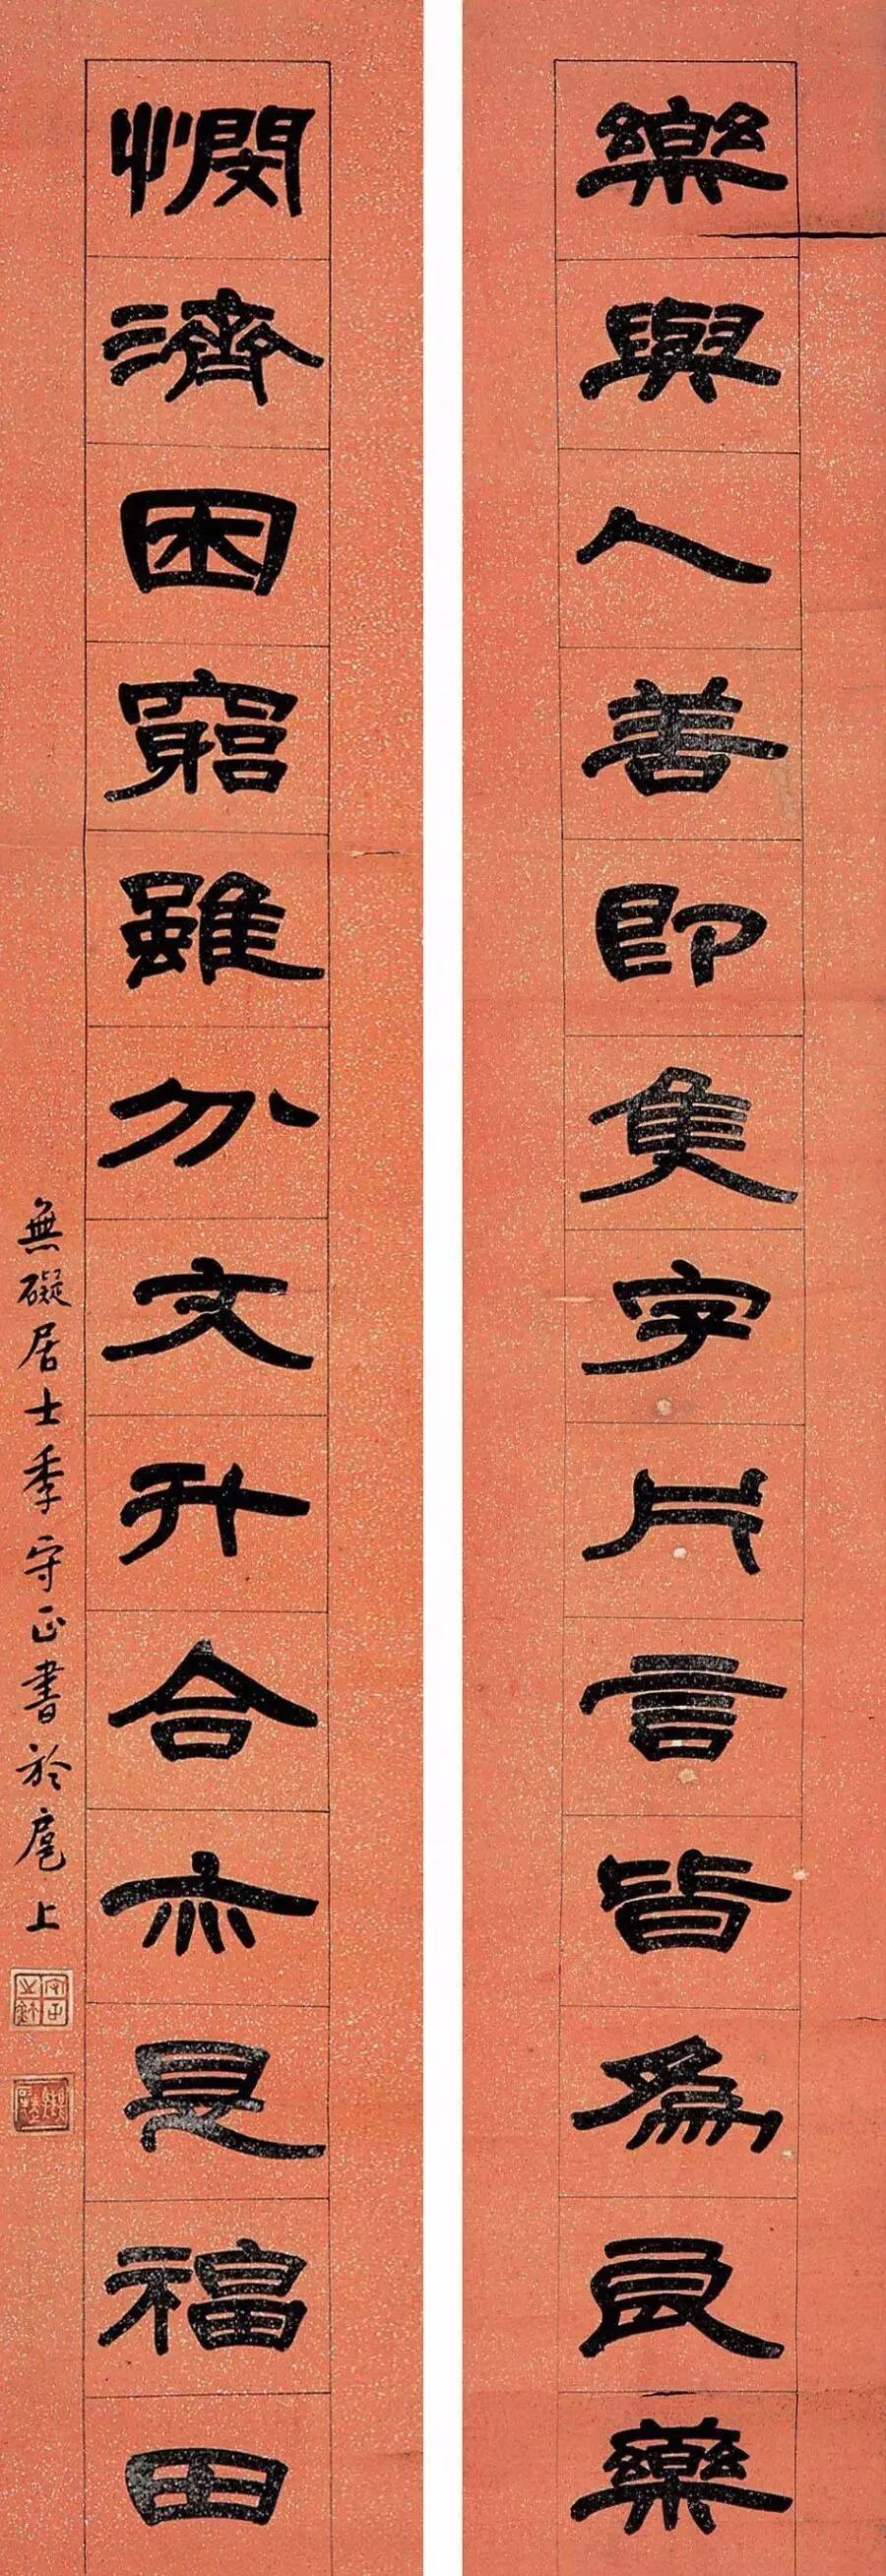 樂與人善即隻字片言皆為良藥
憫濟困窮雖分文升合亦是福田
無礙居士季守正書於扈上
守正之鉥